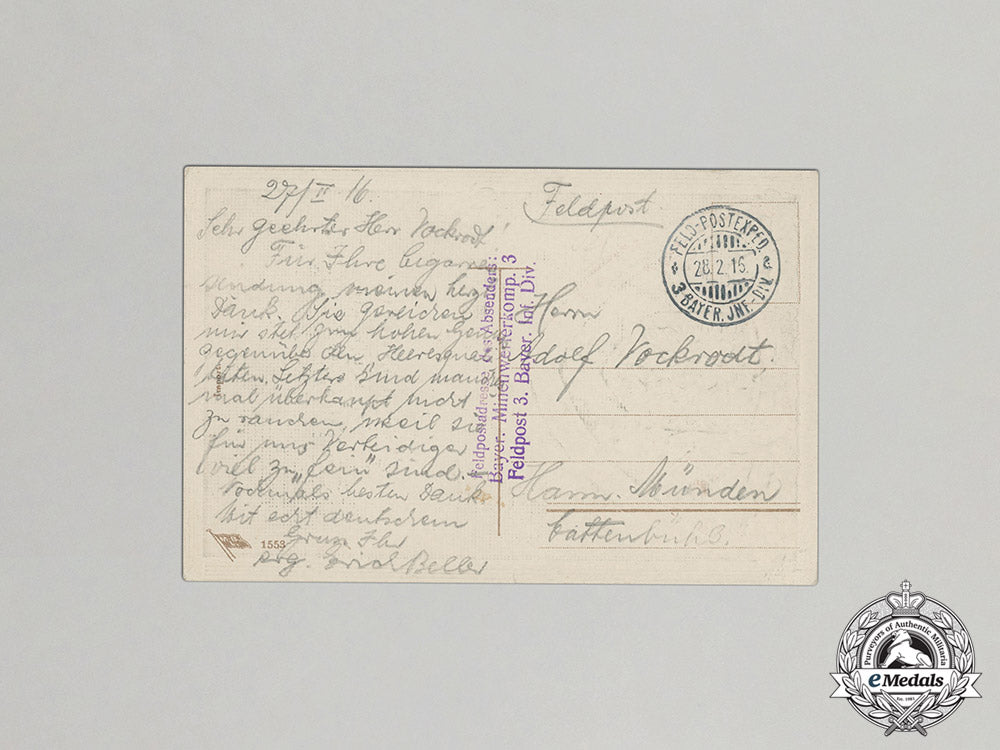 27/II 16.
Sehr geehrter Herr Vockrodt!
Für Ihre Cigarren
sendung meinen herz
Dank. Die gereichen
mir stets zum hohen Genuß
gegenüber den
Letztere sind manch
mal überhaupt nicht
zu rauchen, weil sie
für uns Verteidiger
viel zu „fein“ sind.
Nochmals besten Dank
Mit echt deutschem
Gruss Ihr
erg. Erich Beller
1553
Feldpostadresse des Absenders:
Bayer. Minenwerferkomp. 3
Feldpost 3. Bayer. Inf. Div.
Feldpost.
FELD-POSTEXPED.
28.2.16.
3 BAYER. JNF.-DIV.
Herrn
Adolf Vockrodt.
Hann. Münden
Cattenbühl.
Purveyors of Authentic Militaria
eMedals